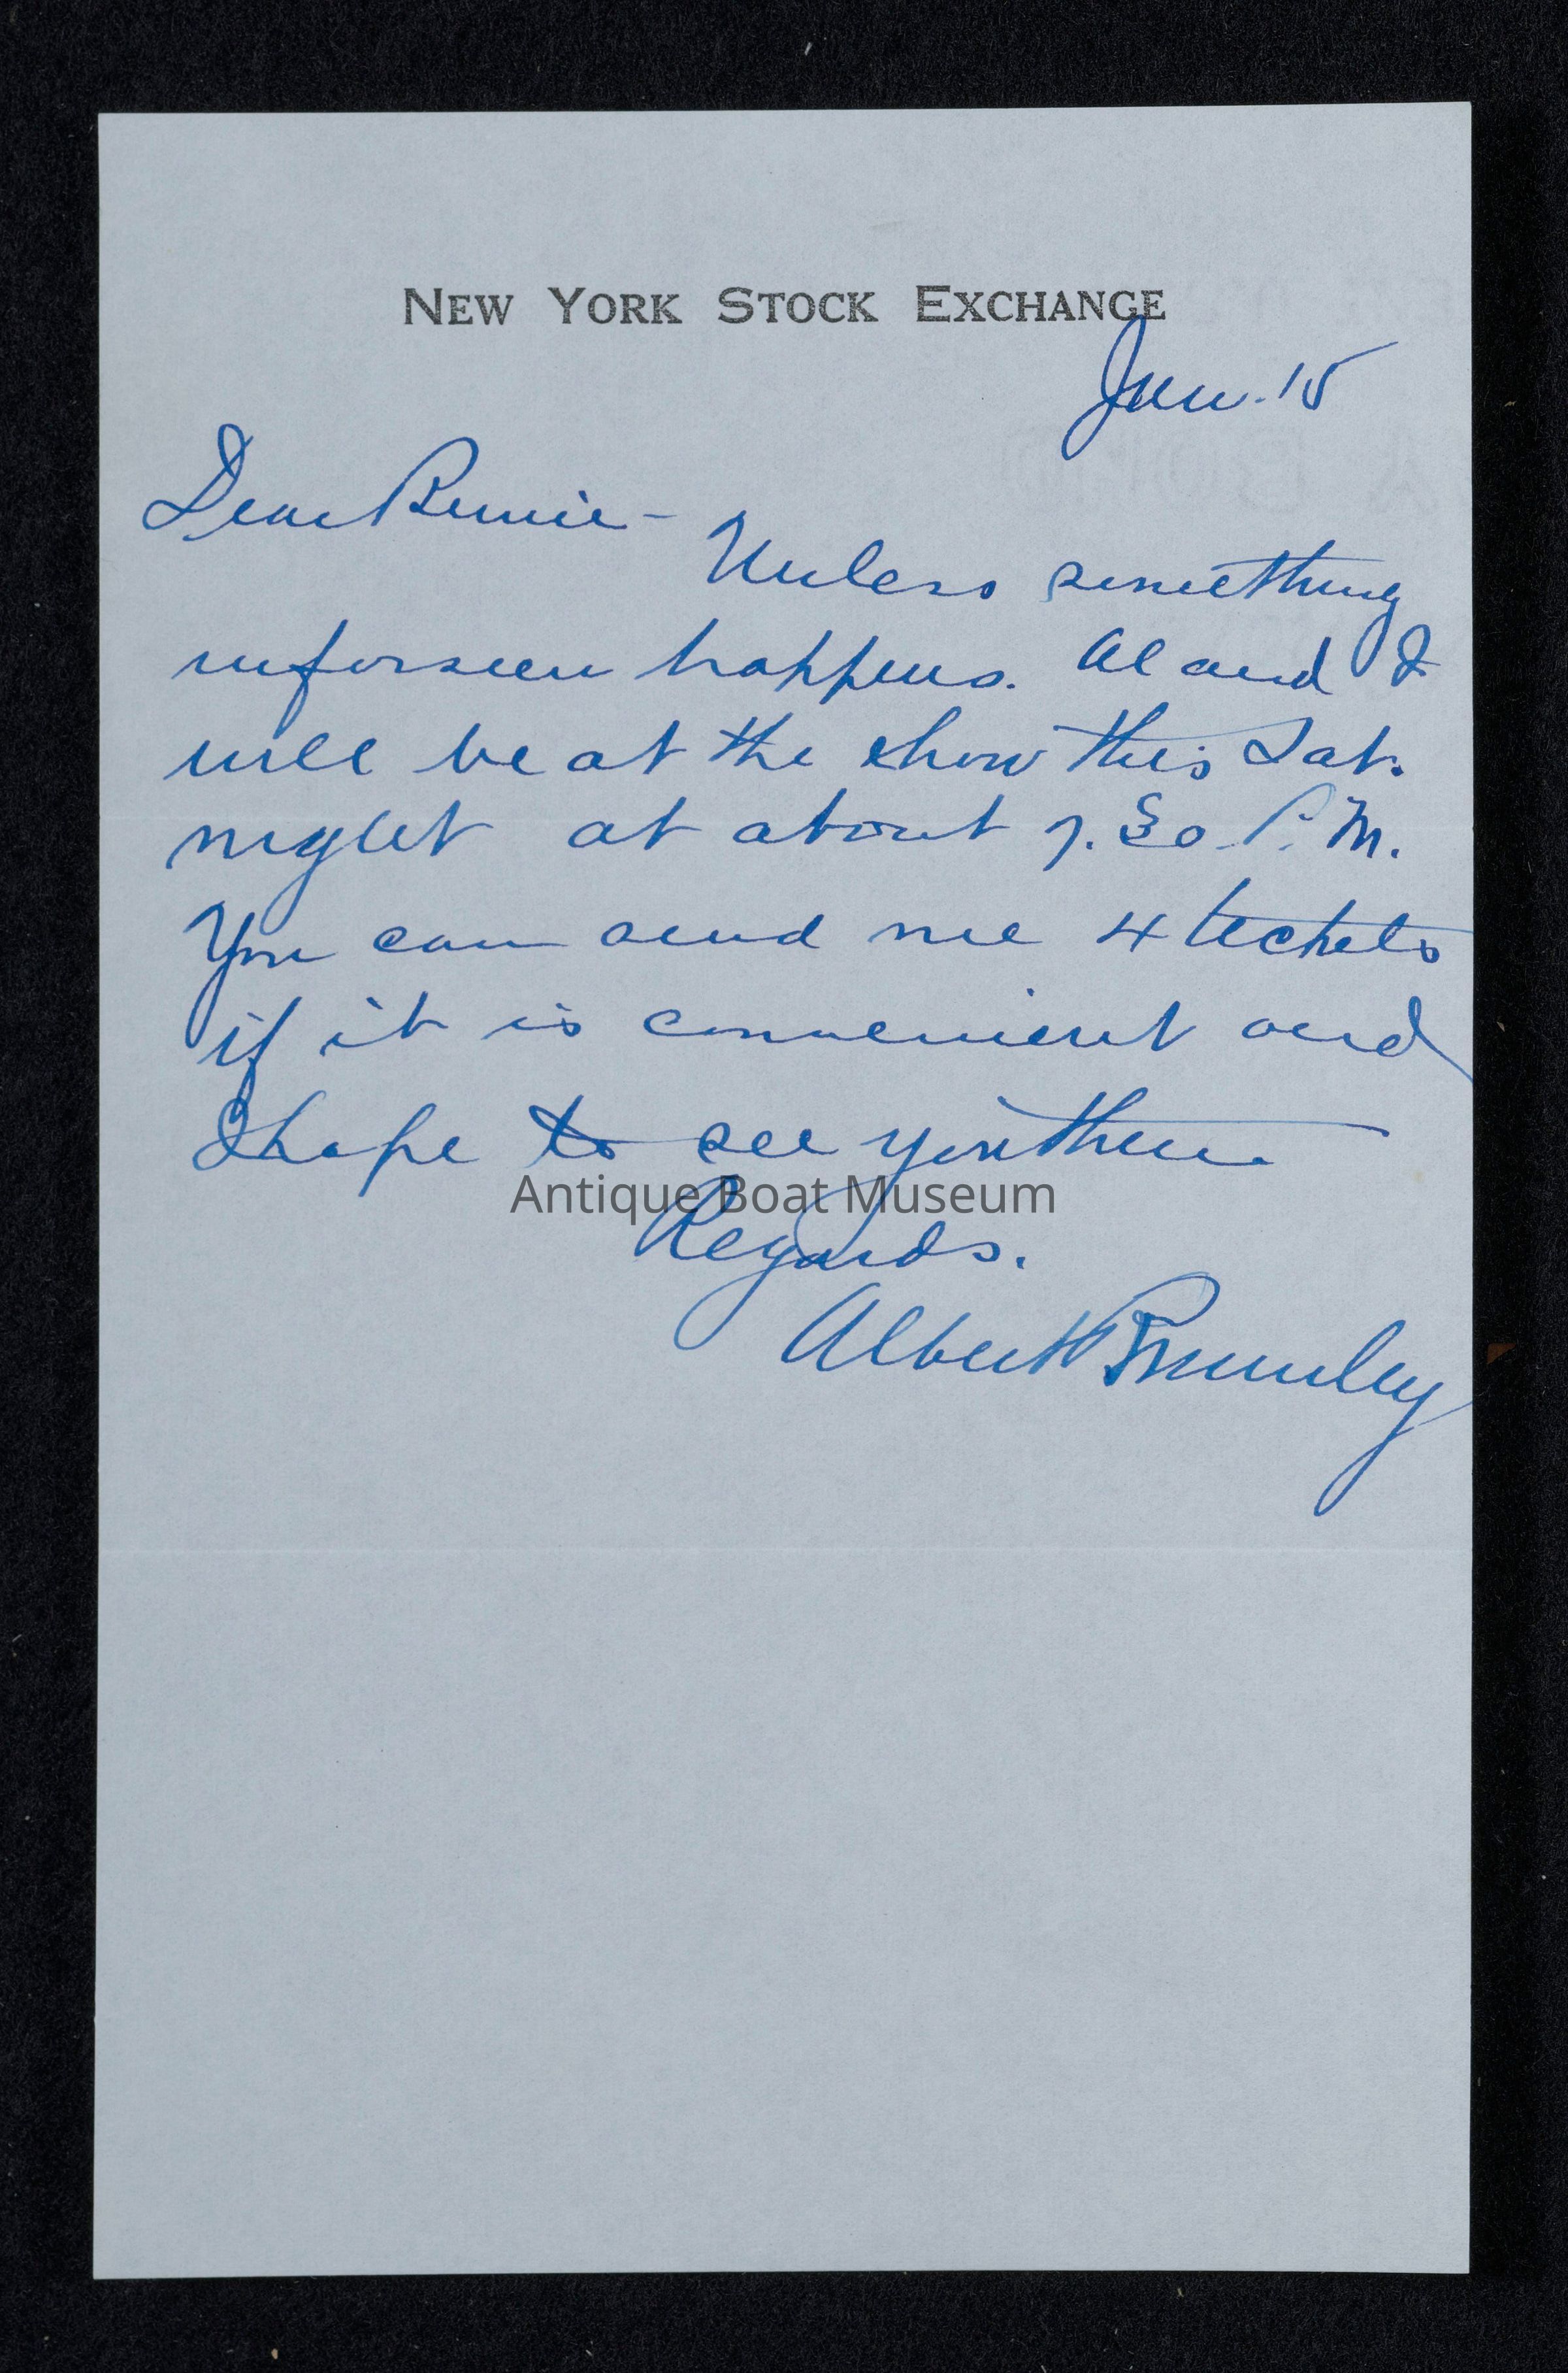 NEW YORK STOCK EXCHANGE
Jan. 15
Dear Bernie -
Unless something
unforseen happens. Al and I
will be at the show this Sat.
night at about 7.30 P.M.
You can send me 4 tickets
if it is convenient and
I hope to see you then.
Antique Boat Museum
Regards.
Albert